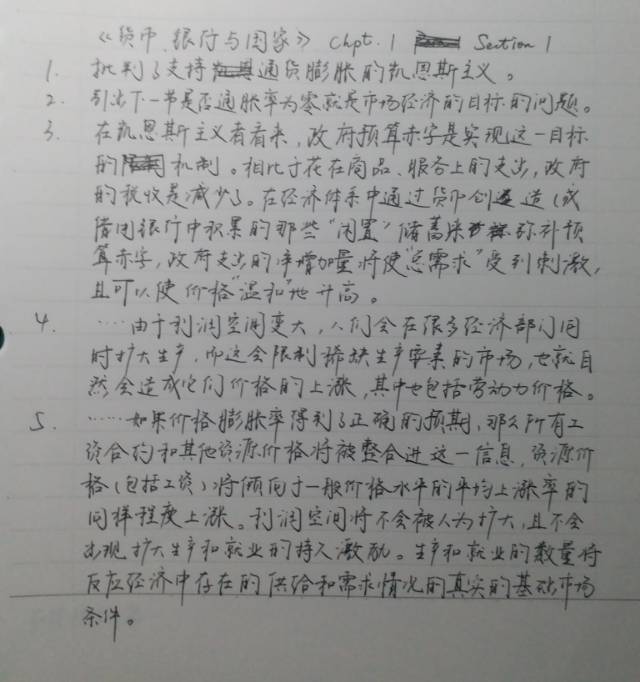 《货币、银行与国家》 Chpt.1 Section 1
1. 批判了支持通货膨胀的凯恩斯主义。
2. 引出下一节是否通胀率为零就是市场经济的目标的问题。
3. 在凯恩斯主义者看来,政府预算赤字是实现这一目标
的机制。相比于花在商品、服务上的支出,政府
的税收是减少了。在经济体系中通过货币创造(或
借用银行中积累的那些“闲置”储蓄来弥补预
算赤字,政府支出的净增加量将使“总需求”受到刺激,
且可以使价格“温和”地升高。
4. ……由于利润空间变大,人们会在很多经济部门同
时扩大生产,而这会限制稀缺生产要素的市场,也就自
然会造成它们价格的上涨,其中也包括劳动力价格。
5. ……如果价格膨胀率得到了正确的预期,那么所有工
资合约和其他资源价格将被整合进这一信息,资源价
格(包括工资)将倾向于一般价格水平的平均上涨率的
同样程度上涨。利润空间将不会被人为扩大,且不会
出现扩大生产和就业的持久激励。生产和就业的数量将
反应经济中存在的供给和需求情况的真实的基础市场
条件。